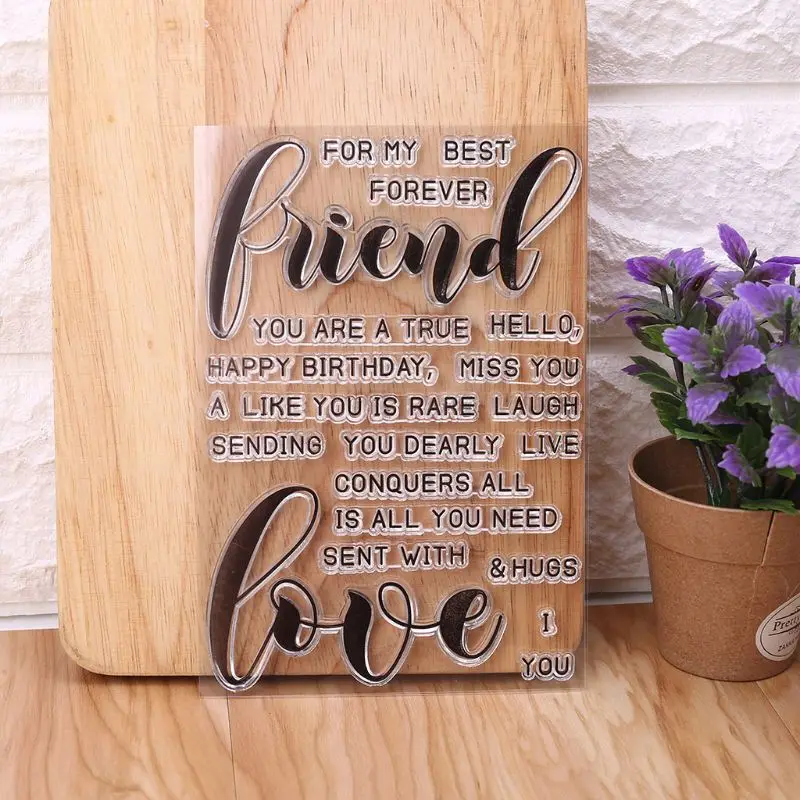 FOR MY BEST
FOREVER
friend
YOU ARE A TRUE HELLO,
HAPPY BIRTHDAY, MISS YOU
A LIKE YOU IS RARE LAUGH
SENDING YOU DEARLY LIVE
CONQUERS ALL
IS ALL YOU NEED
SENT WITH & HUGS
love
I
YOU